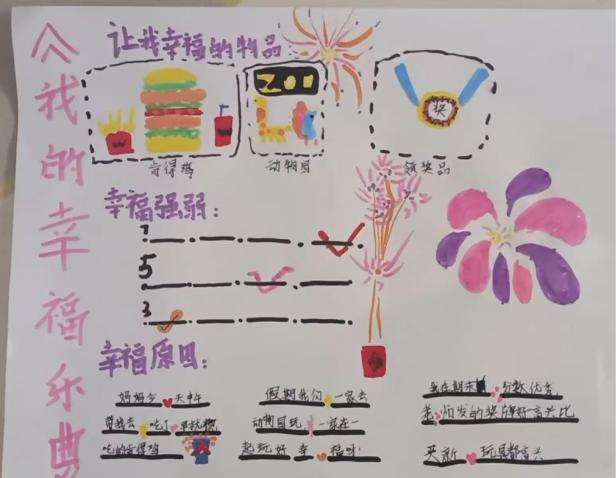 《我的幸福乐典
让我幸福的物品:
ZOO
奖
肯得鸡
动物园
领奖品
幸福强弱:
7
5
3
幸福原因:
妈妈今天中午
带我去吃了
吃的肯得鸡
假期我们一家去
动物园玩一家在一
起玩好幸福呀!
我在期末 分数优秀
老师发的奖牌好高兴比
买新玩具都高兴